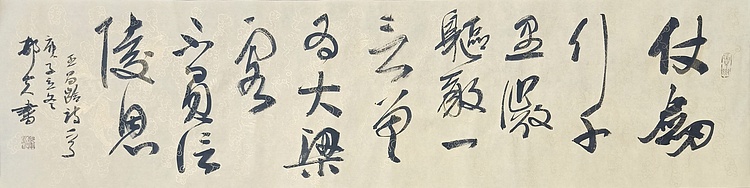 仗劍
行千
里微
軀敢一
言曾
為大梁
客
不負信
陵恩
王昌齡詩一首
庚子冬
書